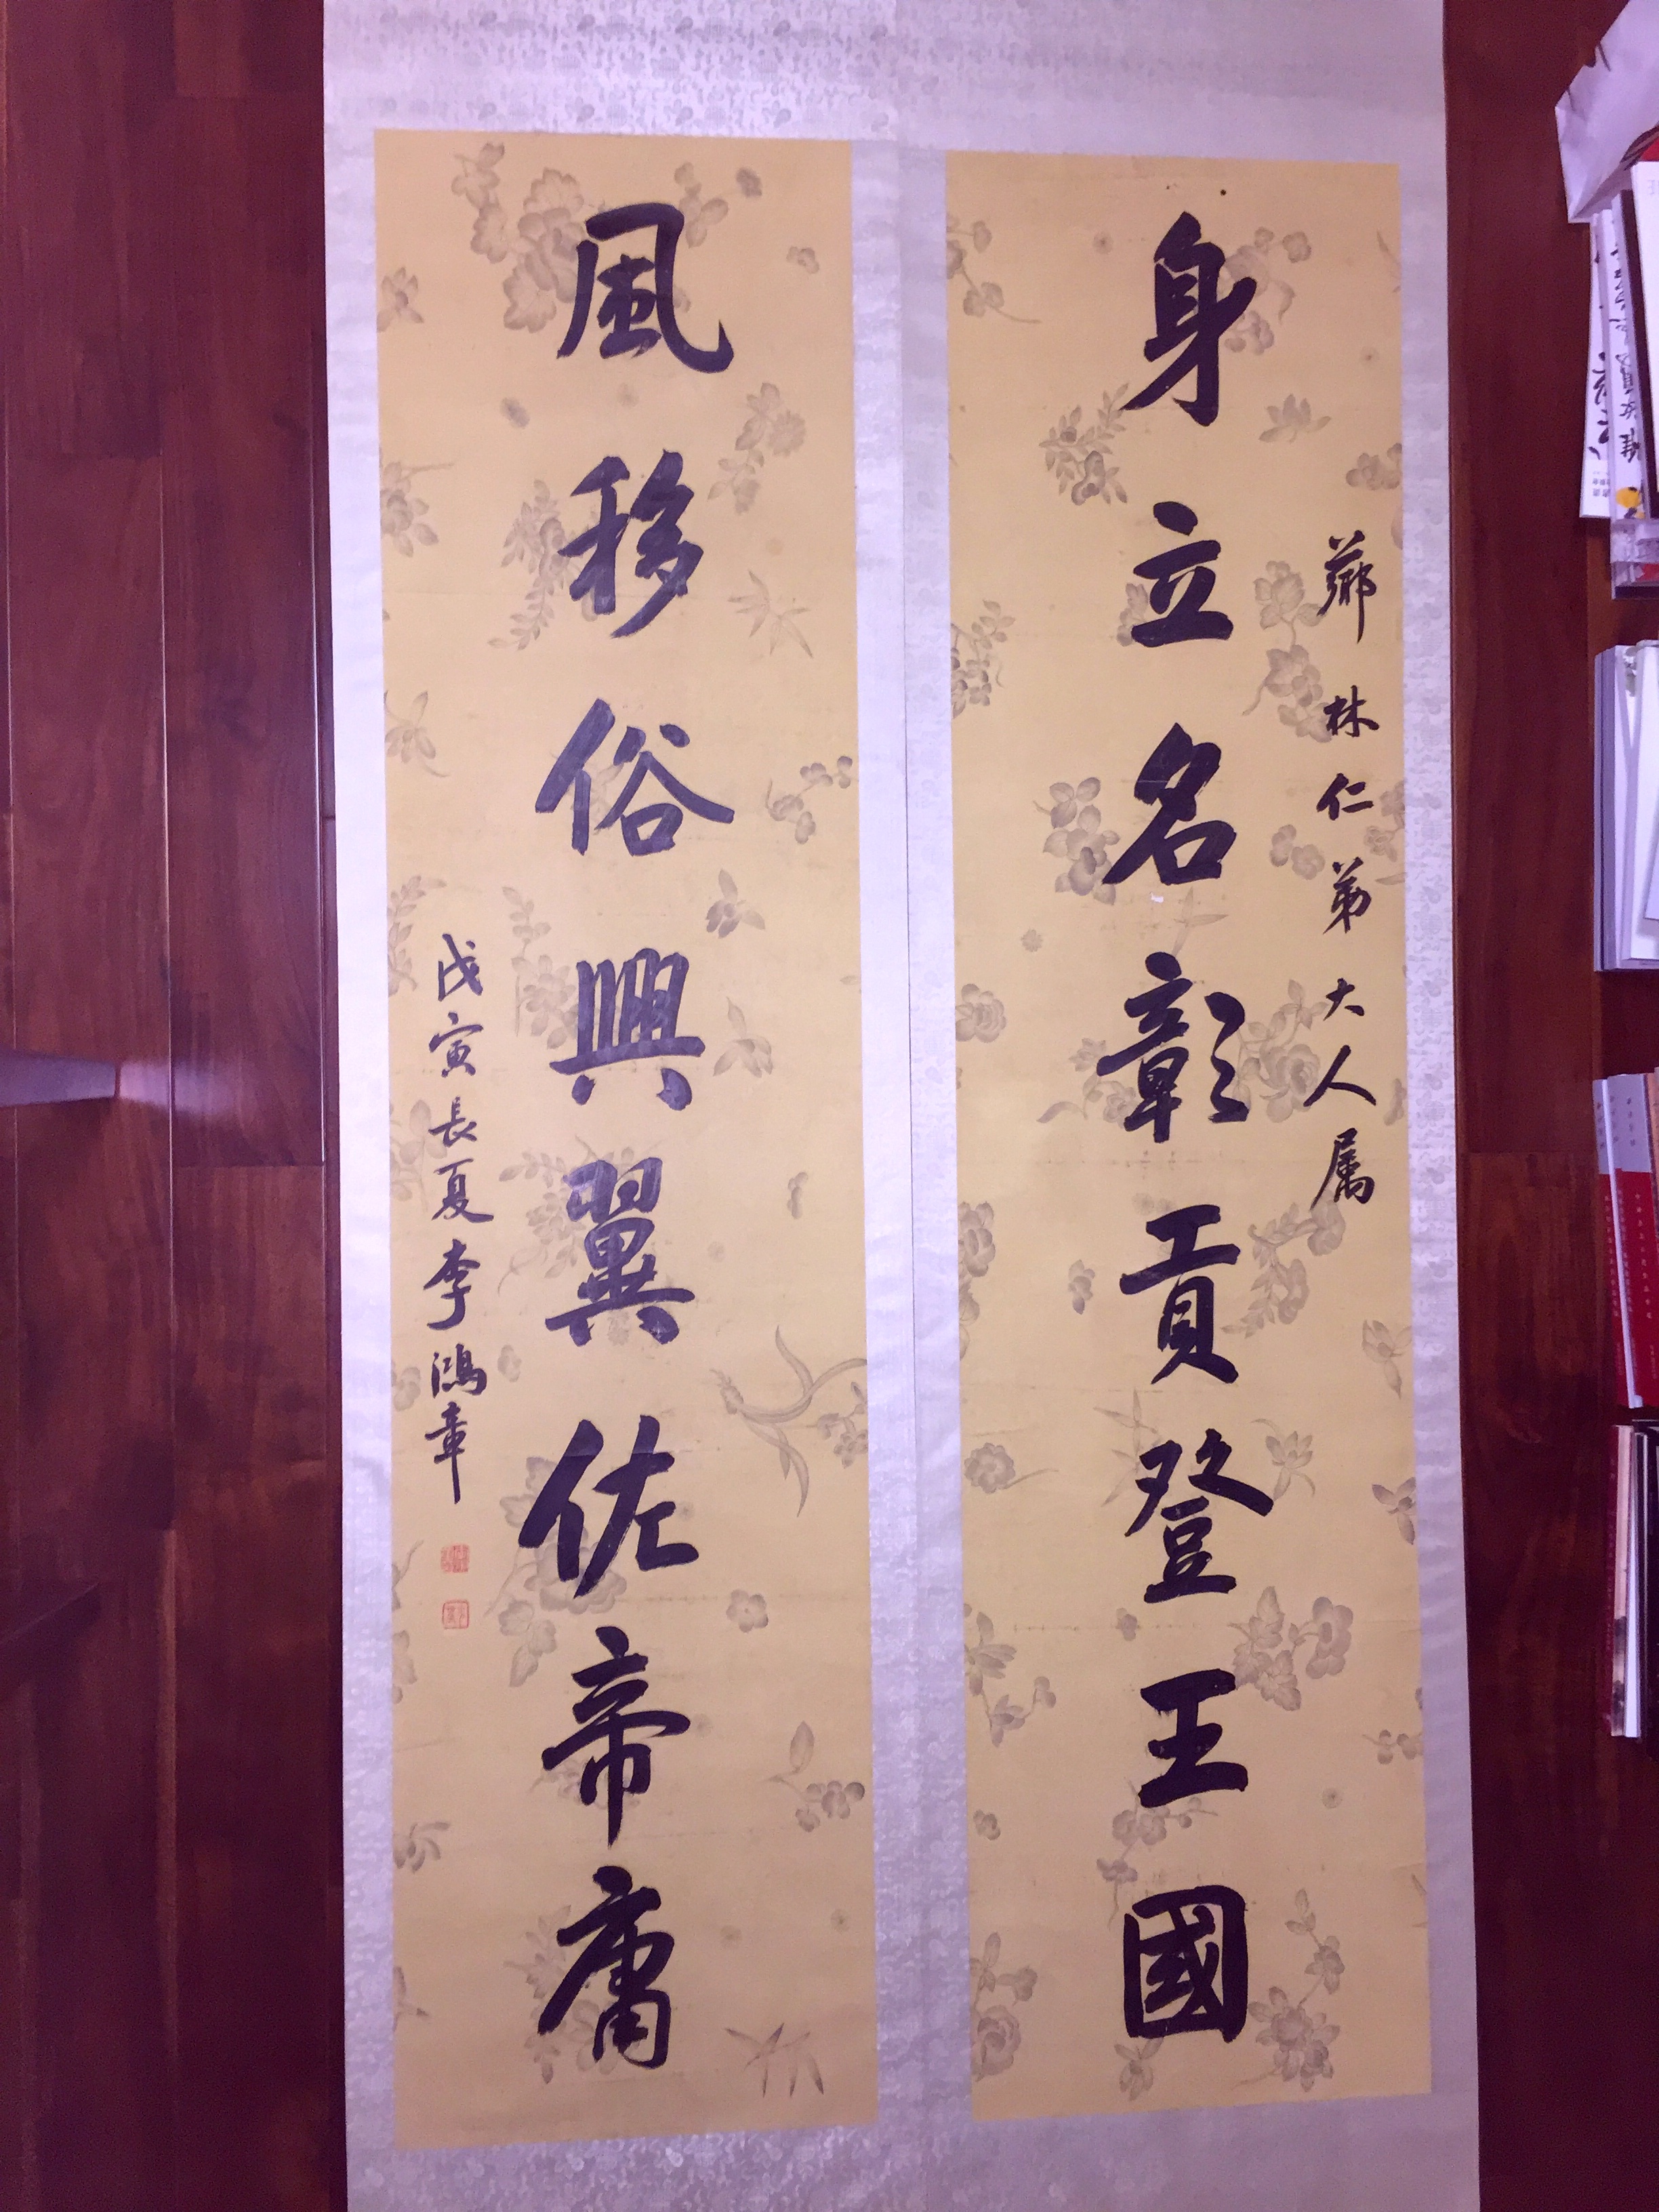 薌林仁弟大人属
身立名彰貢登王國
風移俗興翼佐帝庸
戊寅長夏李鴻章